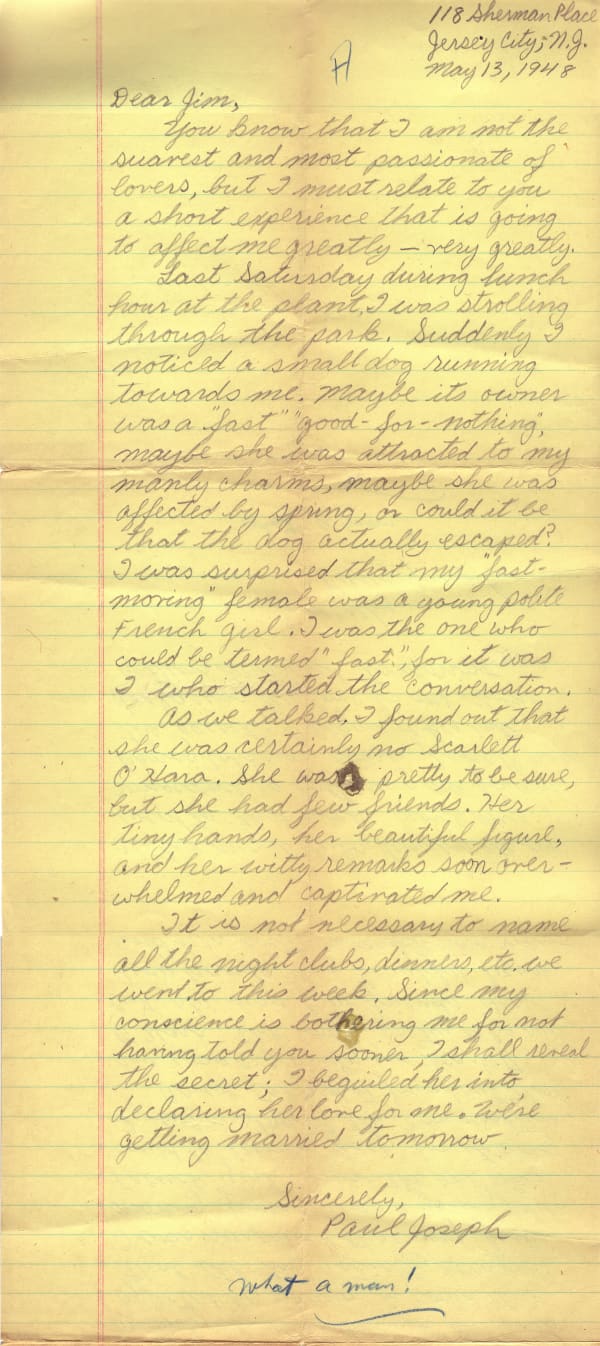 118 Sherman Place
Jersey City, N.J.
May 13, 1948
A
Dear Jim,
You know that I am not the
suavest and most passionate of
lovers, but I must relate to you
a short experience that is going
to affect me greatly — very greatly.
Last Saturday during lunch
hour at the plant, I was strolling
through the park. Suddenly I
noticed a small dog running
towards me. Maybe its owner
was a "fast" "good-for-nothing",
maybe she was attracted to my
manly charms, maybe she was
affected by spring, or could it be
that the dog actually escaped?
I was surprised that my "fast-
moving" female was a young polite
French girl. I was the one who
could be termed "fast", for it was
I who started the conversation.
As we talked, I found out that
she was certainly no Scarlett
O'Hara. She was pretty to be sure,
but she had few friends. Her
tiny hands, her beautiful figure,
and her witty remarks soon over-
whelmed and captivated me.
It is not necessary to name
all the night clubs, dinners, etc. we
went to this week. Since my
conscience is bothering me for not
having told you sooner, I shall reveal
the secret; I beguiled her into
declaring her love for me. We're
getting married tomorrow.
Sincerely,
Paul Joseph
What a man!